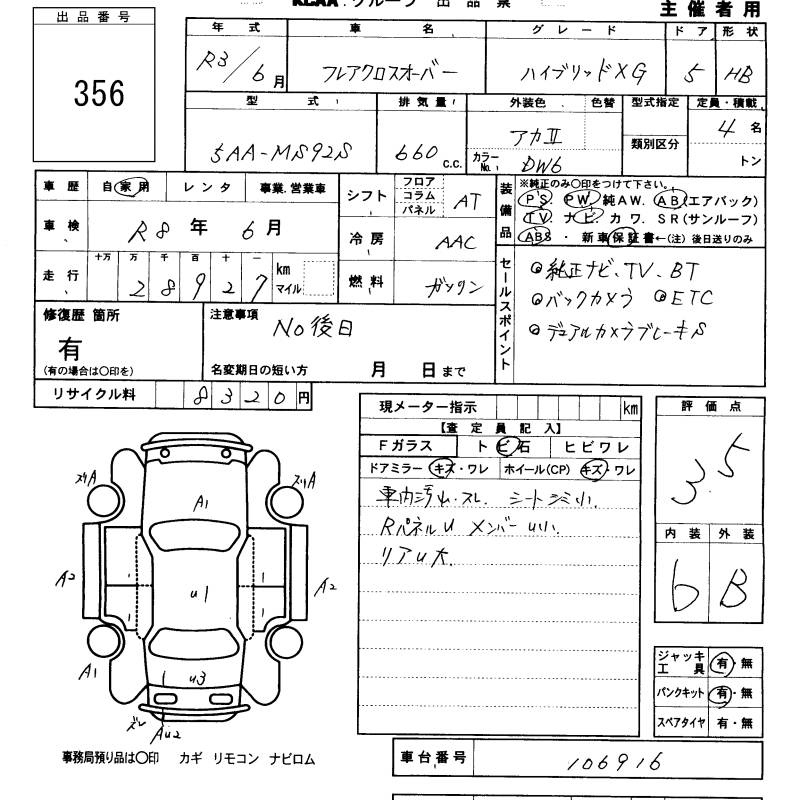 KCAA.グループ 出品票 主催者用
出品番号
356
年式 車名 グレード ドア 形状
R3/6月 フレアクロスオーバー ハイブリッドXG 5 HB
型式 排気量 外装色 色替 型式指定 定員・積載
5AA-MS92S 660 c.c. アカⅡ 類別区分 4名
カラーNo. DW6 トン
車歴 自家用 レンタ 事業.営業車 シフト フロア コラム パネル AT
車検 R8年 6月 冷房 AAC
走行 十万 万 千 百 十 一 28927 km マイル 燃料 ガソリン
装備品 ※純正のみ〇印をつけて下さい。
PS. PW. 純AW. AB(エアバック)
TV ナビ. カワ. SR(サンルーフ)
ABS ・ 新車保証書←(注)後日送りのみ
セールスポイント
◎純正ナビ、TV、BT
◎バックカメラ ◎ETC
◎デュアルカメラブレーキS
修復歴 箇所
有
(有の場合は〇印を)
注意事項 No後日
名変期日の短い方 月 日まで
リサイクル料 8320円
現メーター指示 km
【査定員記入】
Fガラス トビ石 ヒビワレ
ドアミラー キズ・ワレ ホイール(CP) キズ・ワレ
車内汚れ.スレ. シートジミ小.
RパネルU メンバーU小.
リアU大.
評価点
3.5
内装 外装
6 B
ズリA ズリA
A1
A2 U1 A2
A1 U3
ズレ AU2
ジャッキ工具 有・無
パンクキット 有・無
スペアタイヤ 有・無
事務局預り品は〇印 カギ リモコン ナビロム
車台番号 106916